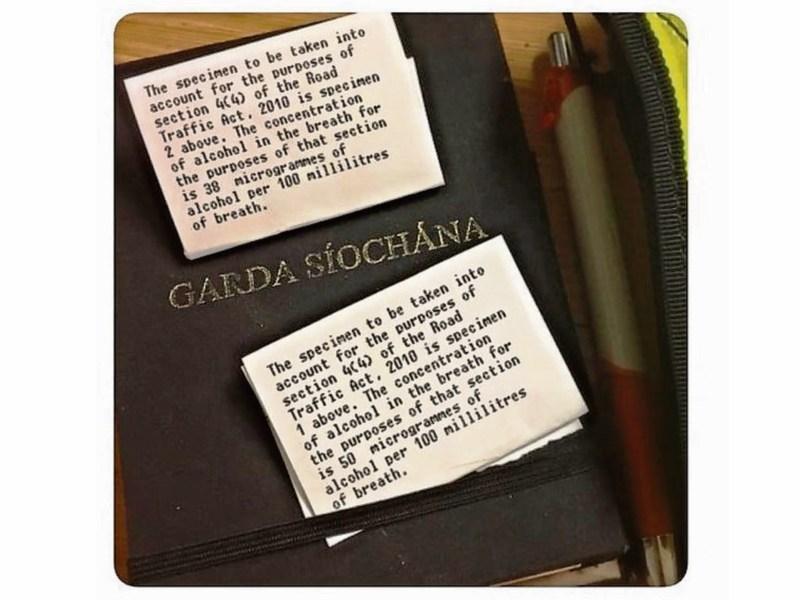 The specimen to be taken into
account for the purposes of
section 4(4) of the Road
Traffic Act, 2010 is specimen
2 above. The concentration
of alcohol in the breath for
the purposes of that section
is 38 microgrammes of
alcohol per 100 millilitres
of breath.
GARDA SÍOCHÁNA
The specimen to be taken into
account for the purposes of
section 4(4) of the Road
Traffic Act, 2010 is specimen
1 above. The concentration
of alcohol in the breath for
the purposes of that section
is 50 microgrammes of
alcohol per 100 millilitres
of breath.